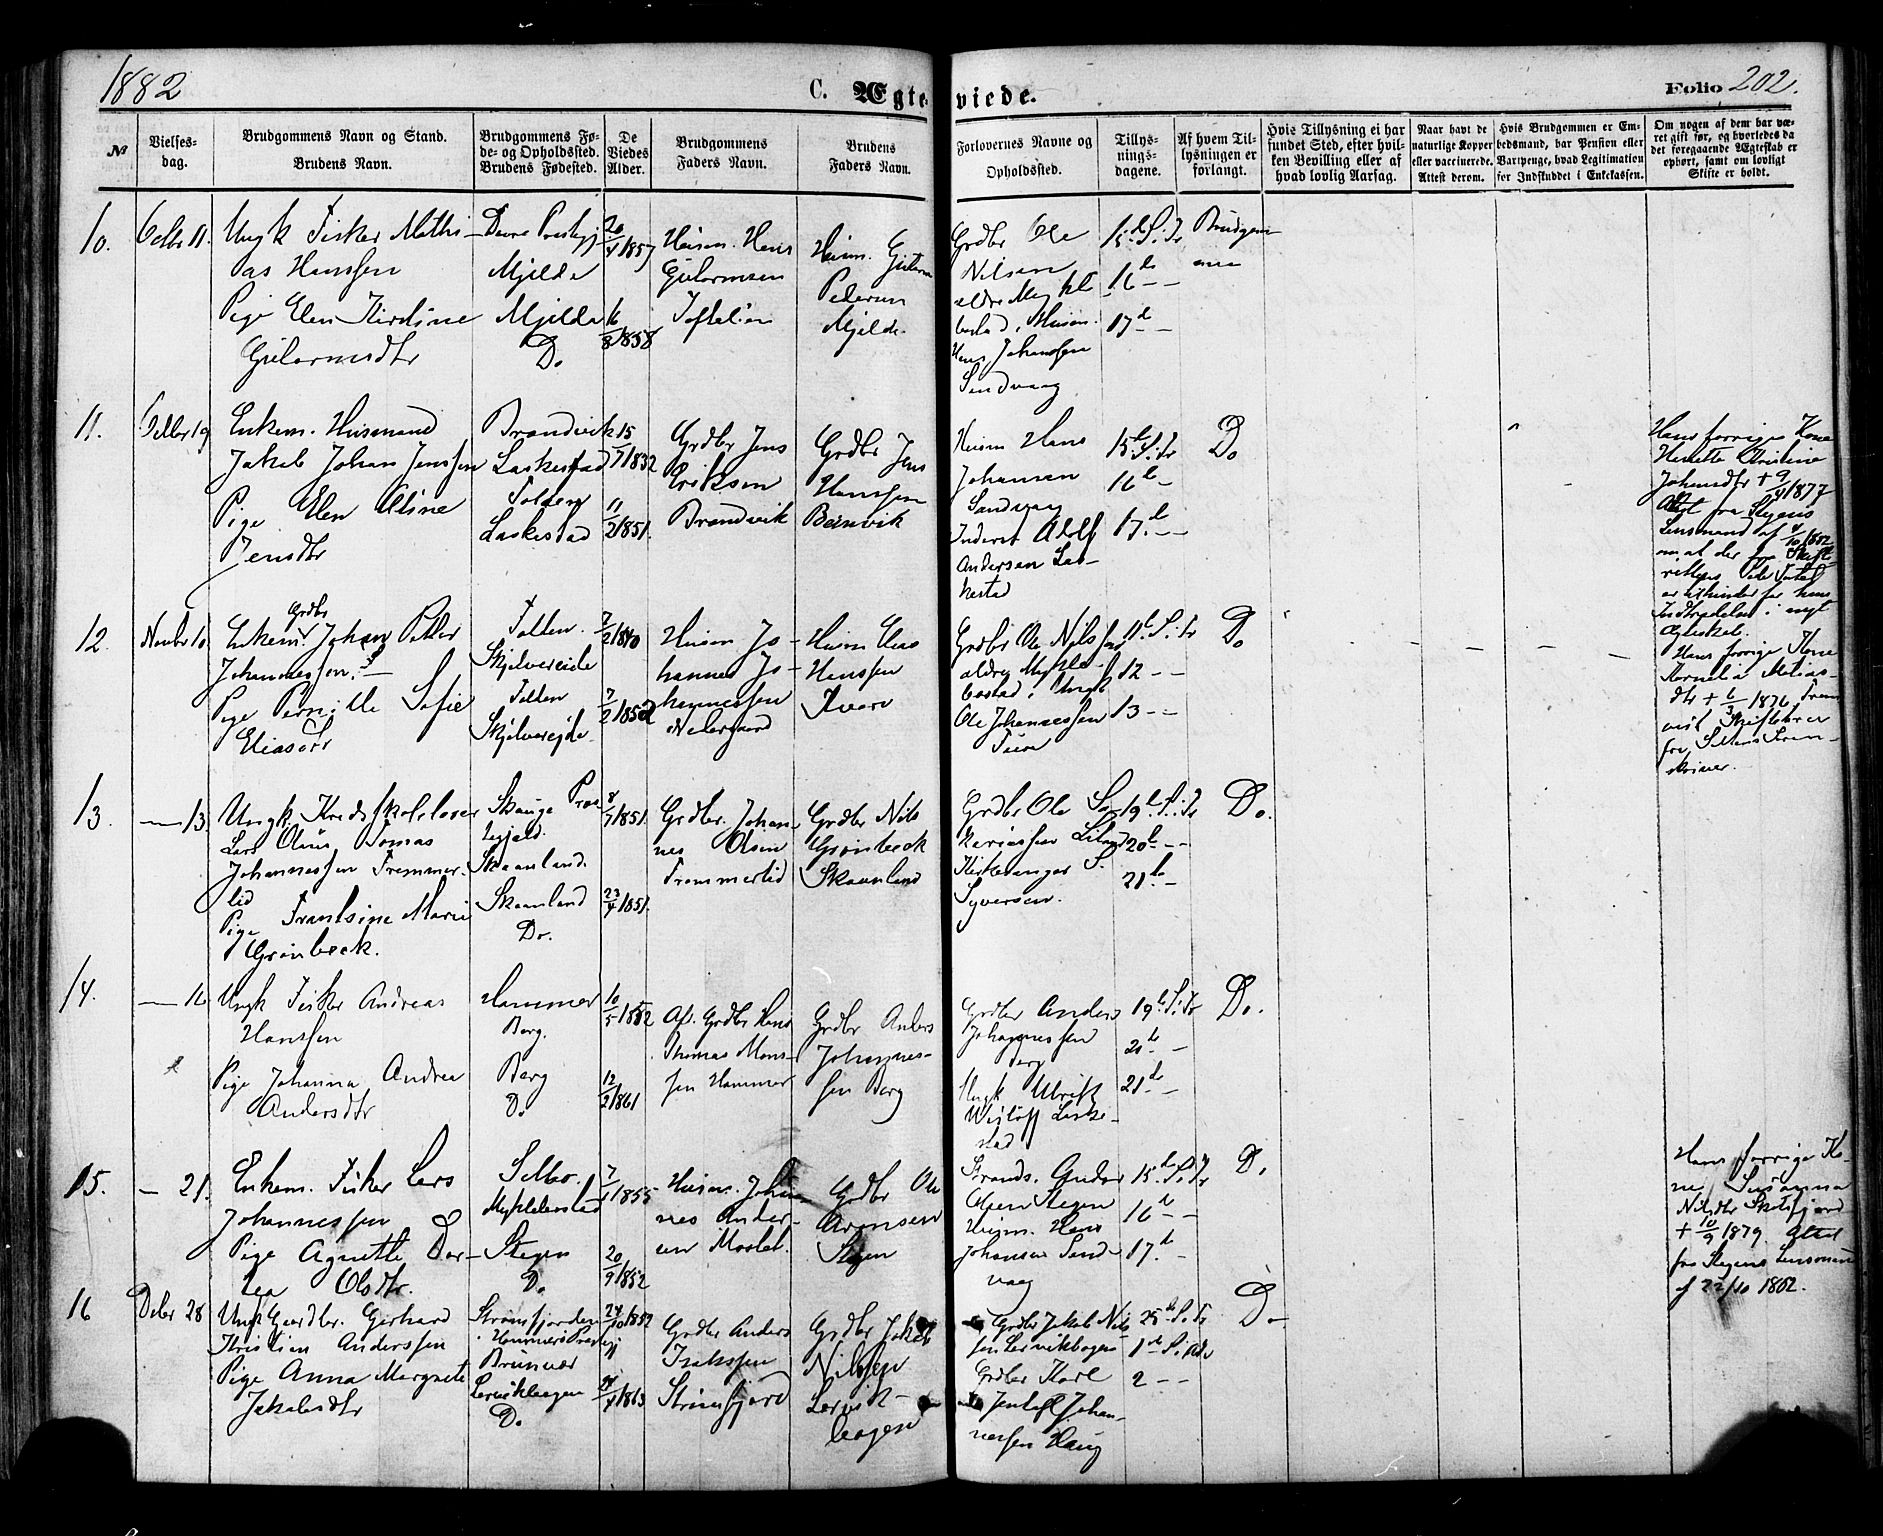 1882
C. Ægteviede.
Folio 202.
№
Vielsesdag.
Brudgommens Navn og Stand.
Brudens Navn.
Brudgommens Føde- og Opholdssted.
Brudens Fødested.
De Viedes Alder.
Brudgommens Faders Navn.
Brudens Faders Navn.
Forlovernes Navne og Opholdssted.
Tillysningsdagene.
Af hvem Tillysningen er forlangt.
Hvis Tillysning ei har fundet Sted, efter hvilken Bevilling eller af hvad lovlig Aarsag.
Naar havt de naturlige Kopper eller vaccinerede. Attest derom.
Hvis Brudgommen er Embedsmand, har Pension eller Vartpenge, hvad Legitimation for Indskuddet i Enkekassen.
Om nogen af dem har været gift før, og hvorledes da det foregaaende Ægteskab er ophørt, samt om lovligt Skifte er holdt.
10.
Octbr 11.
Ungk Fisker Mathi-
as Hanssen
Pige Elen Kirstine
Mjelde
Mjelde
Do
20/4 1857
16/8 1858
Husm. Hans
Husm.
Pedersen
Mjelde
Grdbr Ole
Nilsen
Husm.
Hans Johanssen
Sandvaag
15de S. Tr
16de - -
17de - -
Brudgom-
men
11.
Octbr 19
Enkem. Husmand
Jakob Johan Jenssen
Pige Elen Oline
Jensdtr
Brandvik
Laskestad
Folden
Laskestad
15/7 1832
11/2 1851.
Grdbr Jens
Eriksen
Brandvik
Grdbr Jens
Hanssen
Husm Hans
Johansen
Sandvaag
Inderst Adolf
Andersen Las-
kestad
15de S. Tr
16de -
17de - -
Do
Hans forrige Kone
Johansdtr + 9/4 1877
Attest fra Stegens
Lensmand af 4/10 1882
om at der fra Skift
er i nyt
Ægteskab.
12.
Novbr 10.
Enkem. Grdbr Johan Petter
Johannessen
Pige Pernille Sofie
Eliasdtr
Folden.
Folden
7/2 1840
7/2 1852
Husm Jo-
hannes Jo-
hannessen
Husm Elias
Hanssen
Kvarv
Grdbr Ole Nilssen
bostad. Ungk
Ole Johannessen
11te S. Tr
12 - -
13 - -
Do
Hans forrige Kone
Kornelia Matias-
dtr + 6/3 1876
fra Saltens Soren-
skriver.
13.
— 13.
Ungk. Kredsskolelærer
Lars Olaus Tomas
Johannessen Tremmer-
lid
Pige Frantsine Marie
Grønbeck.
Skauge Præ-
stegjeld.
Skaanland.
Skaanland
Do.
8/7 1851.
23/4 1851.
Grdbr. Johan-
nes Olsen
Tremmerlid
Grdbr Nils
Grønbeck
Skaanland
Grdbr Ole
Kirkesanger S.
Syversen.
19de S. Tr
20de - -
21de -
Do.
14.
— 16
Ungk Fisker Andreas
Hanssen
Pige Johanna Andrea
Andersdtr
Hammer
Berg.
Berg
Do.
10/5 1852
12/2 1861
Af. Grdbr Hans
Thomas Mons-
sen Hammer
Grdbr Anders
Johannes-
sen Berg
Grdbr Anders
Johannessen
Berg
Ungk Ulrik
Laske-
stad
19de S. Tr
20de -
21de -
Do.
15.
— 21.
Enkem. Fisker Lars
Johannessen
Pige Agnette Dor-
tea Olsdtr.
Selbo.
Myklebostad
Stegen
Do
7/1 1855
20/9 1852
Husm. Johan-
nes Ander-
sen
Grdbr Ole
Arensen
Stegen
Olsen Stegen
Husm. Hans
Johansen Sand-
vaag
15de S. Tr
16de -
17de -
Do.
Hans forrige Ko-
ne Susanna
Nilsdtr
+ 10/9 1879. Attest
fra Stegens Lensmand
af 22/10 1882.
16
Dcbr 28
Ungk Gaardbr. Gerhard
Kristian Anderssen
Pige Anna Margrete
Jakobsdtr
Strømfjorden
Brunvær
Do
24/10 1852
1863
Grdbr Anders
Isakssen
Grdbr Jakob
Nilssen
Lervik-
bogen
Grdbr Jakob Nils-
sen Lervikbogen
Grdbr Karl
Johan-
nessen Haug
25de S. Tr
1ste S. i Adv
2 - -
Do